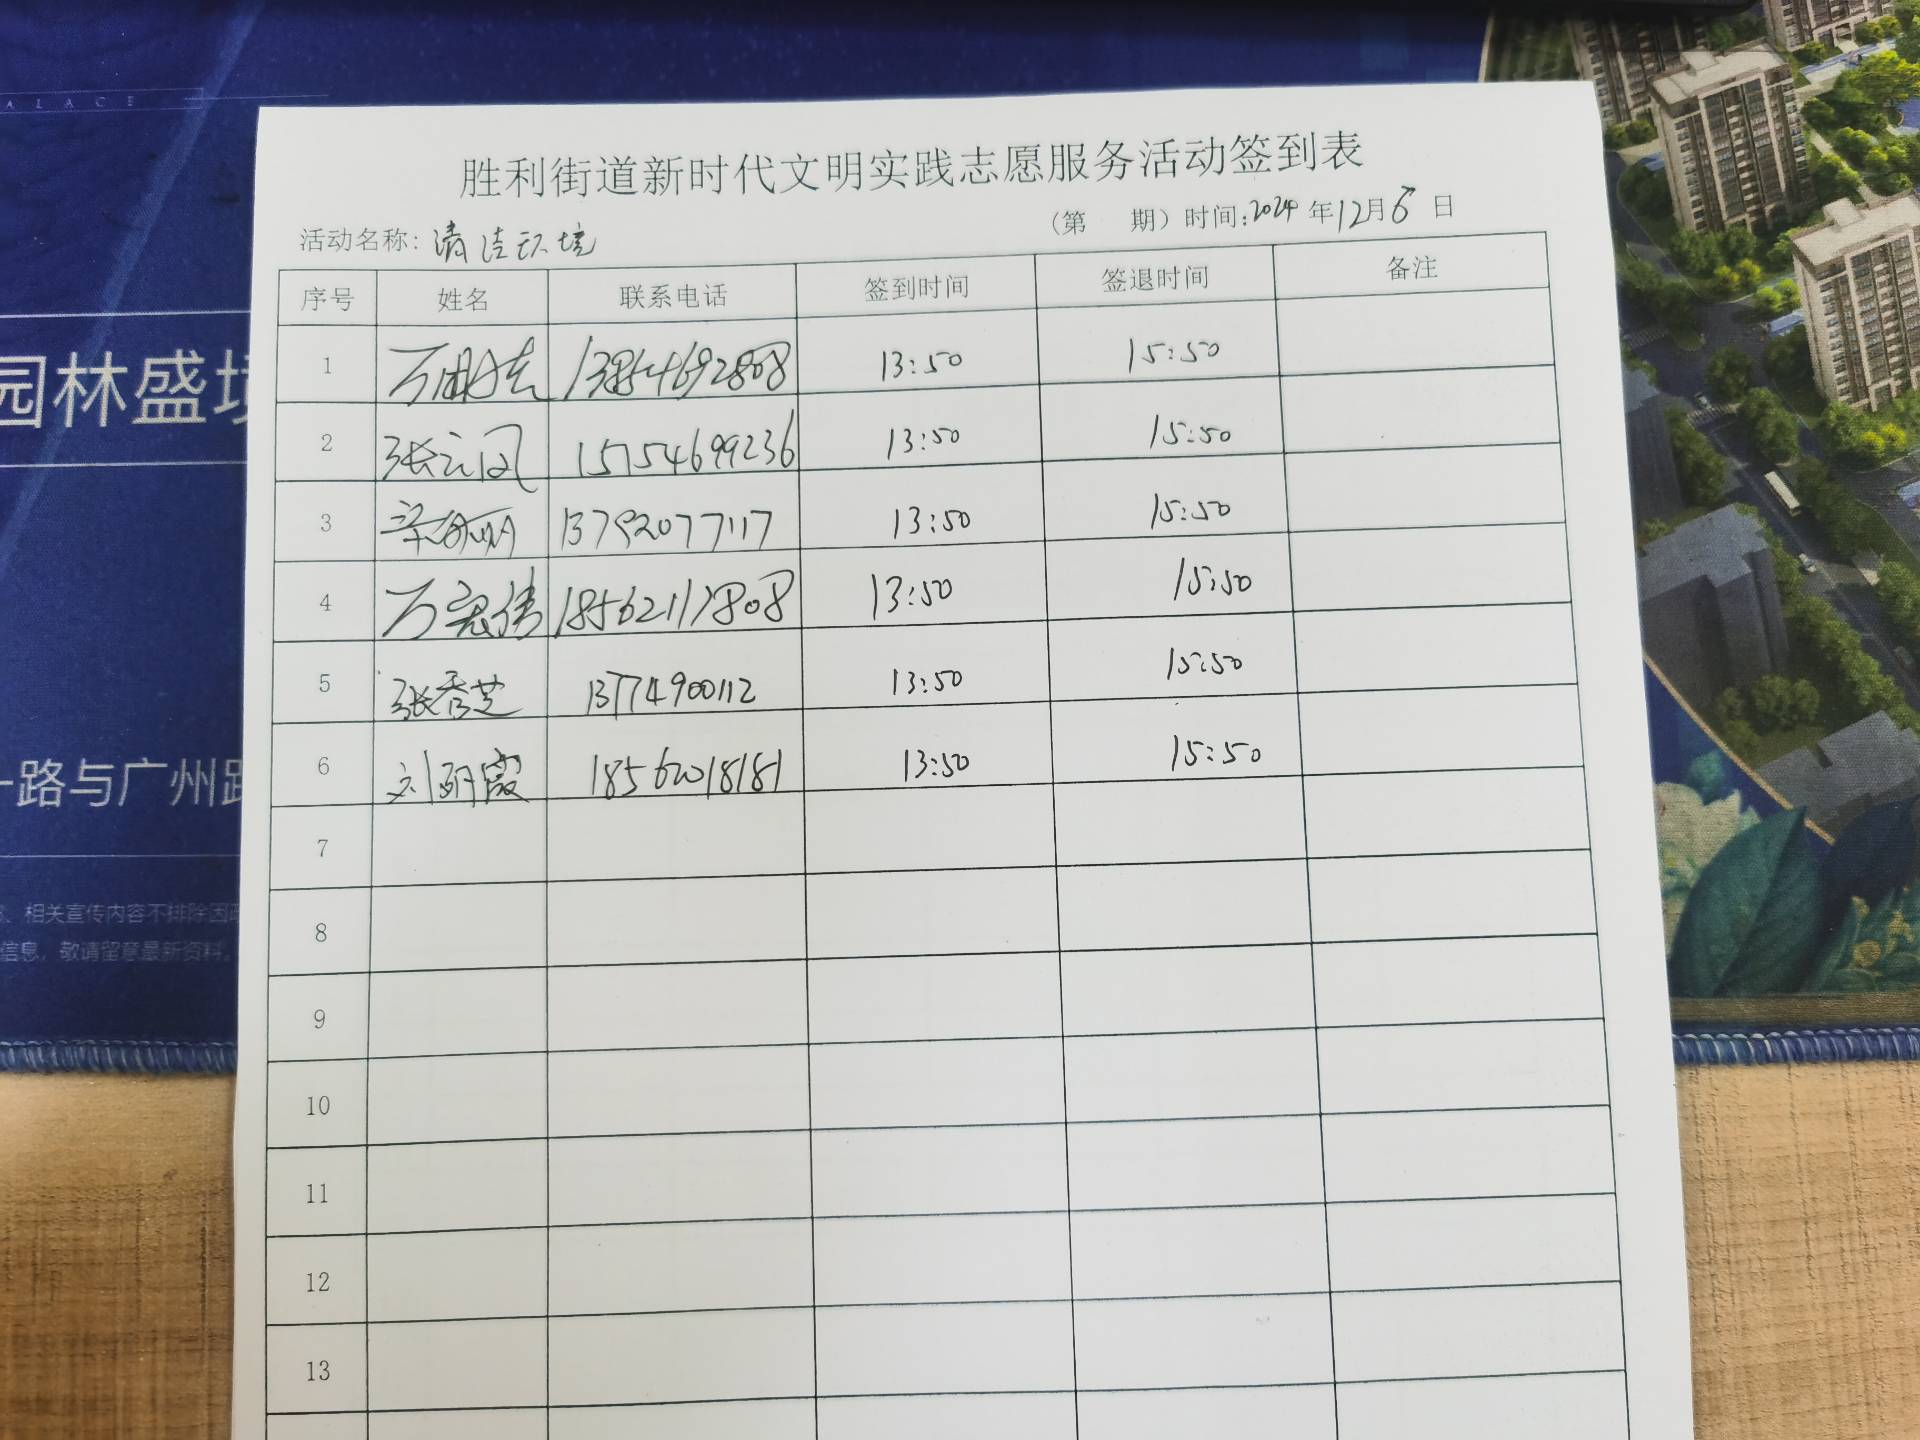 ALACE
园林盛境
一路与广州路
、相关宣传内容不排除因政
信息，敬请留意最新资料。
胜利街道新时代文明实践志愿服务活动签到表
活动名称：清洁环境 （第 期）时间：2024年12月6日
序号 姓名 联系电话 签到时间 签退时间 备注
1 万 13854692808 13:50 15:50
2 张云凤 15754699236 13:50 15:50
3 13792077117 13:50 15:50
4 万宏伟 18562117808 13:50 15:50
5 张秀芝 13774900112 13:50 15:50
6 刘丽霞 18562018181 13:50 15:50
7
8
9
10
11
12
13